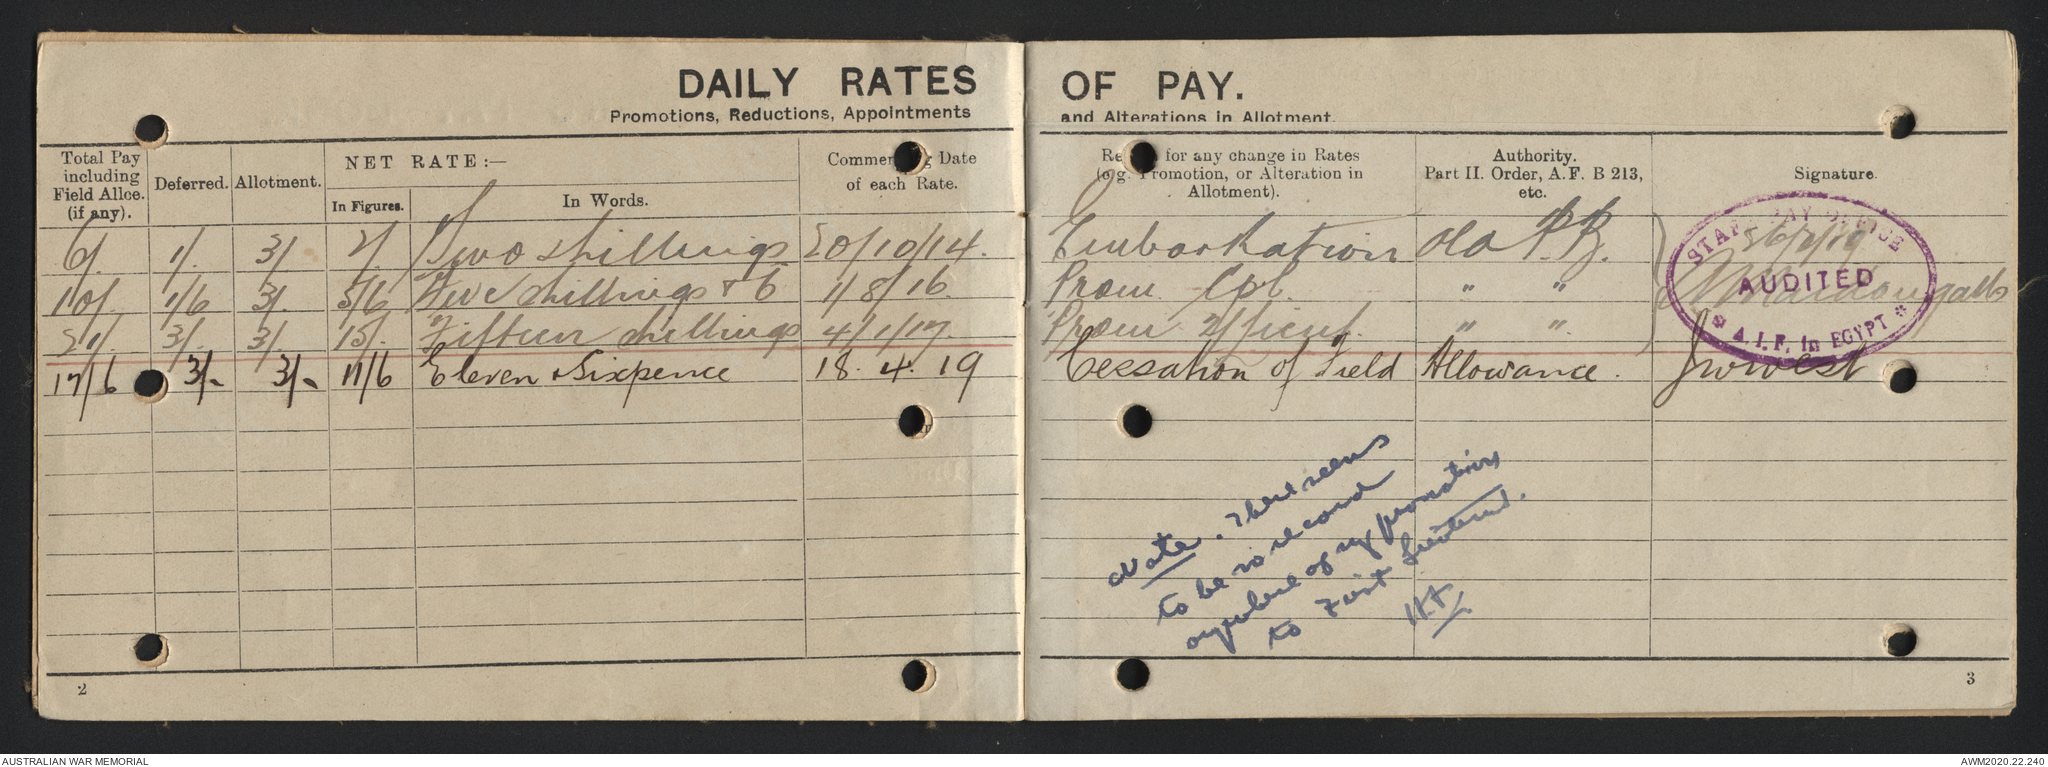 DAILY RATES OF PAY.
Promotions, Reductions, Appointments and Alterations in Allotment.
Total Pay including Field Allce. (if any). Deferred. Allotment. NET RATE:— In Figures. In Words. Commencing Date of each Rate. Reason for any change in Rates (e.g. Promotion, or Alteration in Allotment). Authority. Part II. Order, A.F. B 213, etc. Signature.
6/. 1/. 3/. 2/. Two shillings 20/10/14. Embarkation Old P.B.
10/. 1/6 3/. 5/6 Five shillings & 6 1/8/16 Prom Cpl. " "
21/. 3/. 3/. 15/. Fifteen shillings 4/1/17. Prom 2/Lieut. " ".
17/6 3/- 3/- 11/6 Eleven & Sixpence 18. 4. 19 Cessation of Field Allowance.
STAFF PAY OFFICE
AUDITED
* A.I.F. in EGYPT *
Note. There seems
to be no record
anywhere of my promotion
to First Lieutenant.
2
3
AUSTRALIAN WAR MEMORIAL
AWM2020.22.240